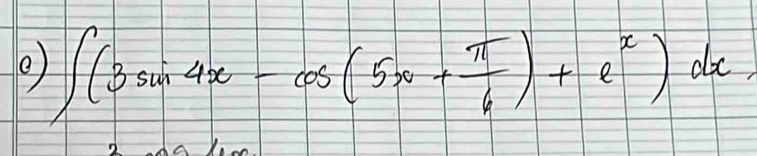 e) ∫(3 sin 4x - cos(5x + π/6) + e^x) dx.